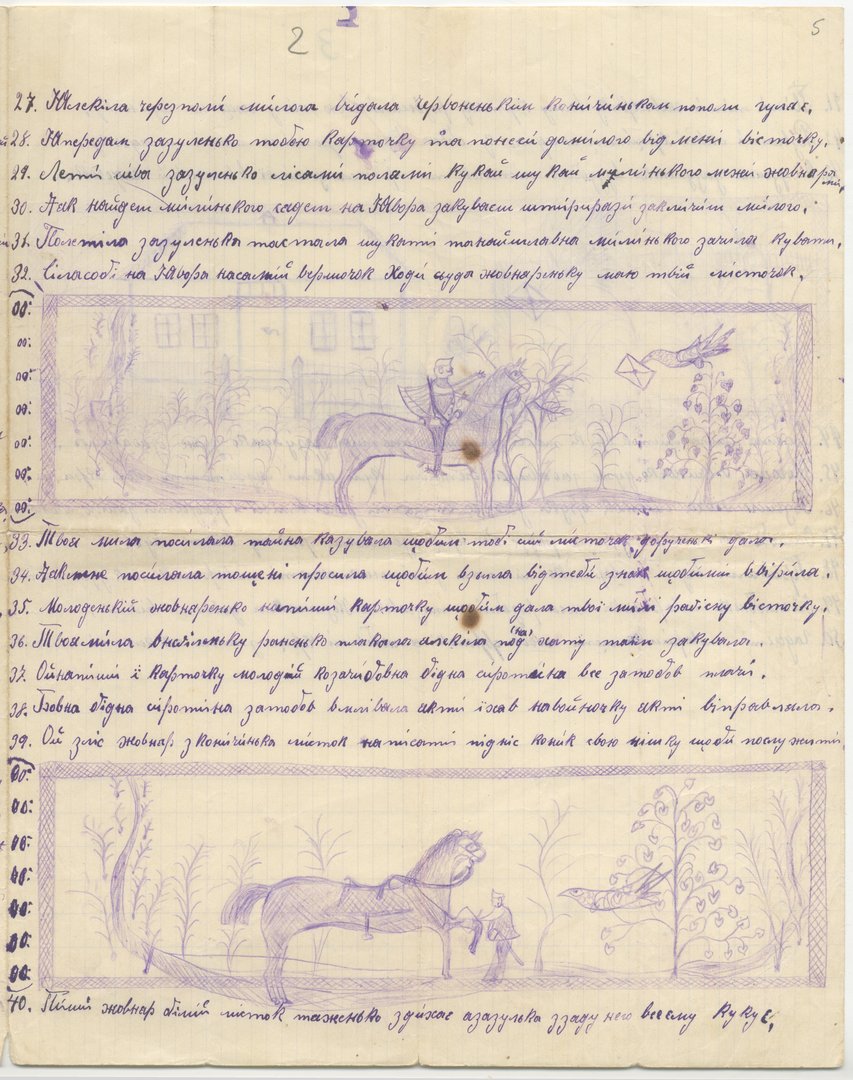 2
5
27. Ялекіла черезполи милога видала червоненьким кониченьком пополи гуляє,
28. Япередам зазуленько тобою карточку та понеси домилого від мені вісточку.
29. Лети сива зазуленько лісами полами кукай шукай милінького межи жовнярами,
30. Аак найдеш милінького садеш на Явора закуваеш штирирази закличіш милого.
31. Полетіла зазуленька тастала шукати танайшлавна милінького зачила кувати.
32. Сіласобі на Явора насамий вершочок Ходи сюда жовнареньку маю твій листочок.
33. Твоя мила посилала тайна казувала щобим тобі сий листочок дорученькі дала.
34. Аакмне посилала тощені просила щобим взьила відтебі знак щобимні ввірила.
35. Молоденький жовнаренько напиши карточку щобим дала твої милі радісну вісточку.
36. Твоямила внділеньку раненько плакала алекіла під (на) хату таки закувала.
37. Ойнапиши ї карточку молодий козачиобовна бідна сиротина все затобов плачі.
38. Бовна бідна сиротина затобов вмлівала акти їхав навойночку акті віправлала.
39. Ой зліс жовнар зкониченька листок написати підніс коник свою ніжку щоби послужити
40. Пиши жовнар білий листок таженько здихає азазулька ззаду него веему кукує,